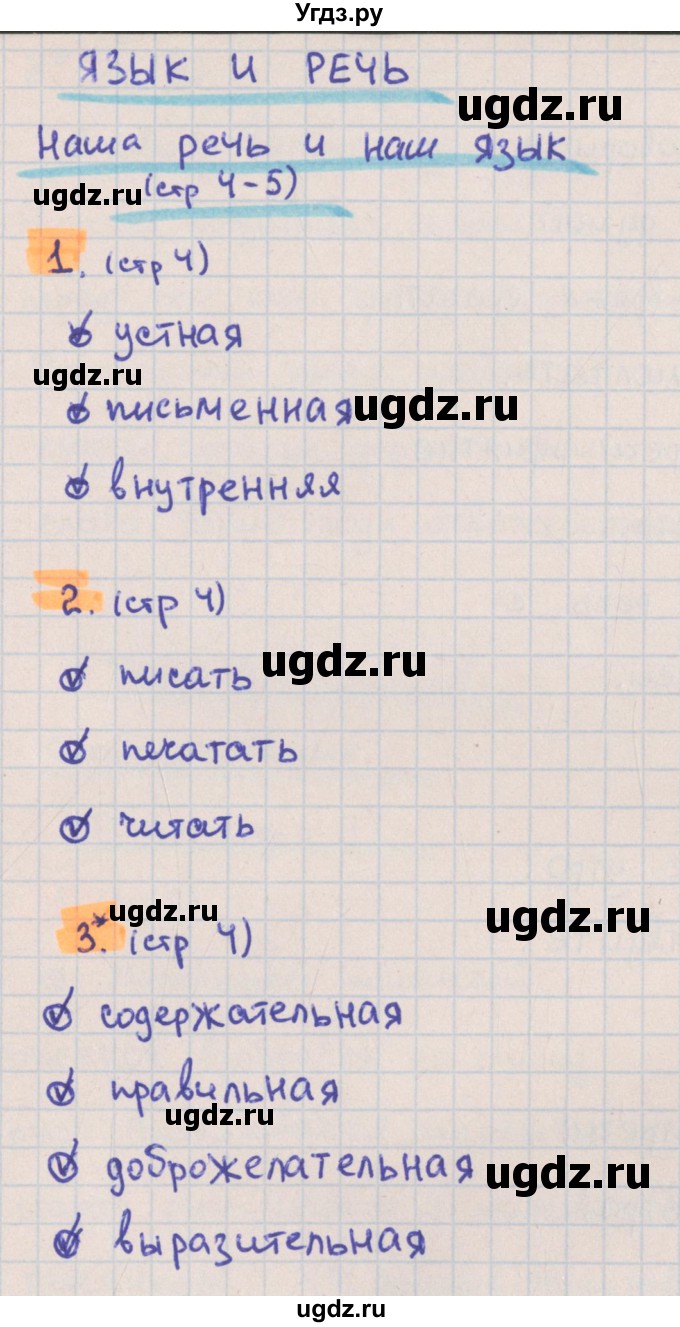 Угдз.ру
ЯЗЫК И РЕЧЬ
ugdz.ru
Наша речь и наш язык
ugdz.ru (стр 4-5)
1. (стр 4)
устная
ugdz.ru
письменная ugdz.ru
внутренняя
2. (стр 4)
писать ugdz.ru
печатать
читать
ugdz.ru ugdz.ru
3.* (стр 4)
содержательная
правильная
ugdz.ru
доброжелательная ugdz.ru
выразительная
ugdz.ru